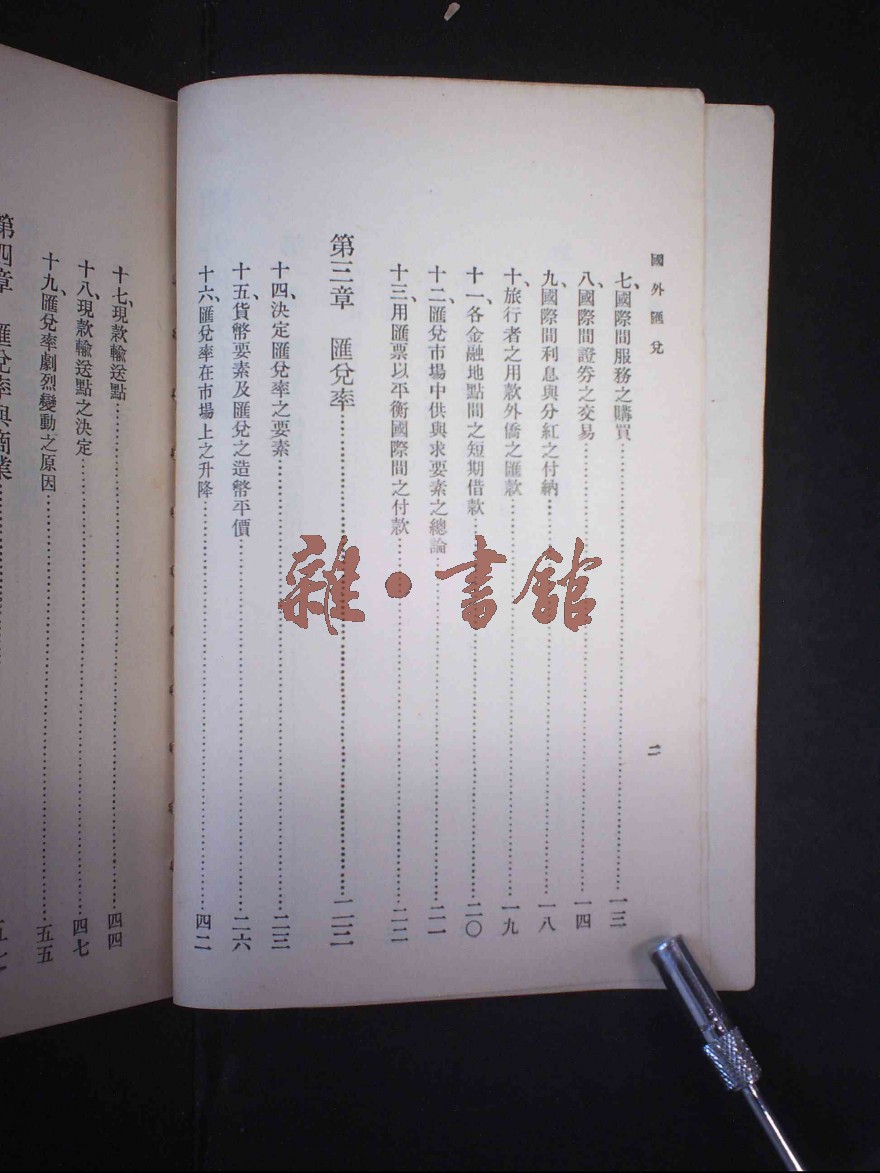 國外匯兌
二
七、國際間服務之購買……一三
八、國際間證券之交易……一四
九、國際間利息與分紅之付納……一八
十、旅行者之用款外僑之匯款……一九
十一、各金融地點間之短期借款……二〇
十二、匯兌市場中供與求要素之總論……二一
十三、用匯票以平衡國際間之付款……二二
第三章 匯兌率……二三
十四、決定匯兌率之要素……二三
十五、貨幣要素及匯兌之造幣平價……二六
十六、匯兌率在市場上之升降……四二
十七、現款輸送點……四四
十八、現款輸送點之決定……四七
十九、匯兌率劇烈變動之原因……五五
第四章 匯兌率與商業……
雜·書館